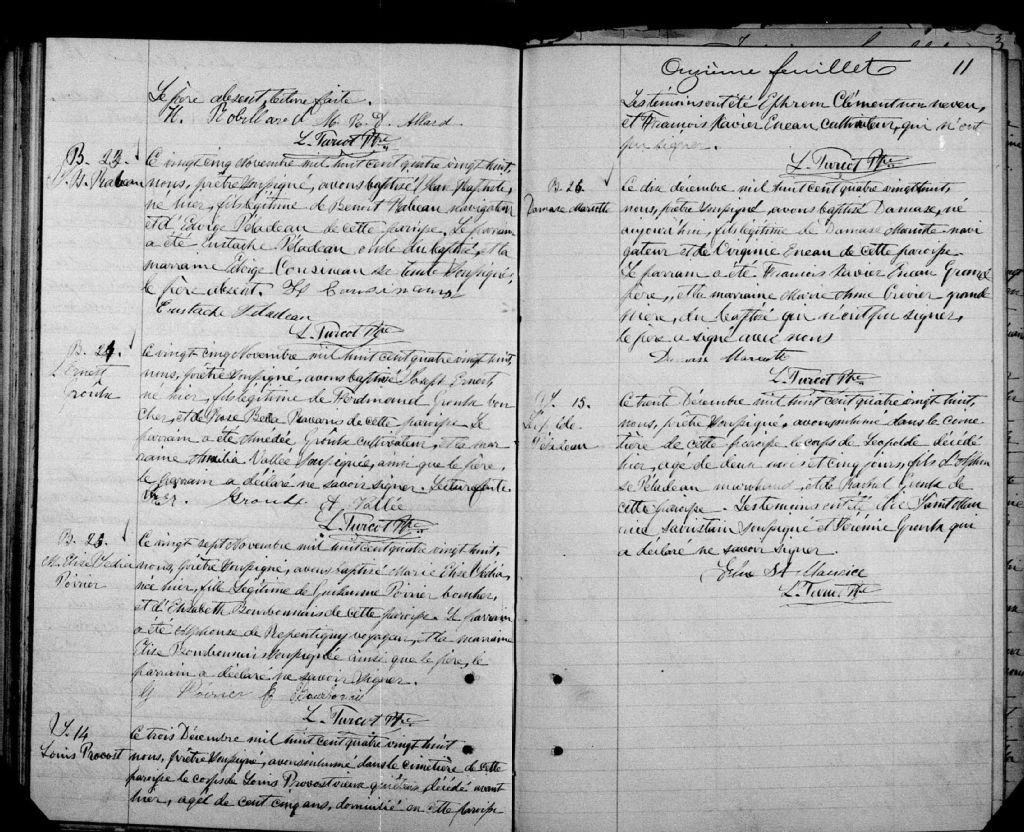 Le père absent, lecture faite.
H. Robillard M. R. D. Allard
L. Turcot Ptre
B. 23.
J. B. Rabeau
Ce vingt cinq Novembre mil huit cent quatre vingt huit,
nous, prêtre soussigné, avons baptisé Jean Baptiste,
né hier, fils légitime de Benoit Rabeau navigateur
et d'Edwige Péladeau de cette paroisse. Le parrain
a été Eustache Péladeau oncle du baptisé, et la
marraine Edwige Cousineau sa tante soussignés,
le père absent. Cousineau
Eustache Péladeau
L. Turcot Ptre
B. 24.
J. Ernest
Groulx
Ce vingt cinq Novembre mil huit cent quatre vingt huit,
nous, prêtre soussigné, avons baptisé Joseph Ernest,
né hier, fils légitime de Ferdinand Groulx bou
cher, et de Rose de cette paroisse. Le
parrain a été Amédée Groulx cultivateur, et la mar
raine Amilia Vallée soussignée, ainsi que le père,
le parrain a déclaré ne savoir signer. Lecture faite.
Groulx A. Vallée
L. Turcot Ptre
B. 25.
M. Elise
Poirier
Ce vingt sept Novembre mil huit cent quatre vingt huit,
nous, prêtre soussigné, avons baptisé Marie Elise
née hier, fille légitime de Guillaume Poirier boucher,
et d'Elizabeth Bourbonnais de cette paroisse. Le parrain
a été Alphonse de Repentigny voyageur, et la marraine
Elise Bourbonnais soussignée ainsi que le père, le
parrain a déclaré ne savoir signer.
G Poirier E Bourbonnais
L. Turcot Ptre
S. 14
Louis Provost
Ce trois Décembre mil huit cent quatre vingt huit
nous, prêtre soussigné, avons inhumé dans le cimetière de cette
paroisse le corps de Louis Provost décédé avant
hier, agé de cent cinq ans, domicilié en cette paroisse
Onzième feuillet 11
Les témoins ont été Ephrem Clément son neveu,
et François Xavier Eneau cultivateur, qui n'ont
pu signer.
L. Turcot Ptre
B. 26.
Damase Marcotte
Ce dix décembre mil huit cent quatre vingt huit,
nous, prêtre soussigné avons baptisé Damase, né
aujourd'hui, fils légitime de Damase Marcotte navi
gateur et de Virginie Eneau de cette paroisse.
Le parrain a été François Xavier Eneau Grand
père, et la marraine Marie Anne Crevier grande
mère, du baptisé qui n'ont pu signer,
le père a signé avec nous
Damase Marcotte
L. Turcot Ptre
S. 15.
Léopolde
Péladeau
Ce trente Décembre mil huit cent quatre vingt huit,
nous, prêtre soussigné, avons inhumé dans le cime
tière de cette paroisse le corps de Léopolde décédé
hier, agé de deux mois et cinq jours, fils d'Alphon
se Péladeau marchand, et de Rachel Groulx de
cette paroisse. Les témoins ont été Saint Mau
rice, sacristain soussigné et Groulx qui
a déclaré ne savoir signer.
St Maurice
L. Turcot Ptre